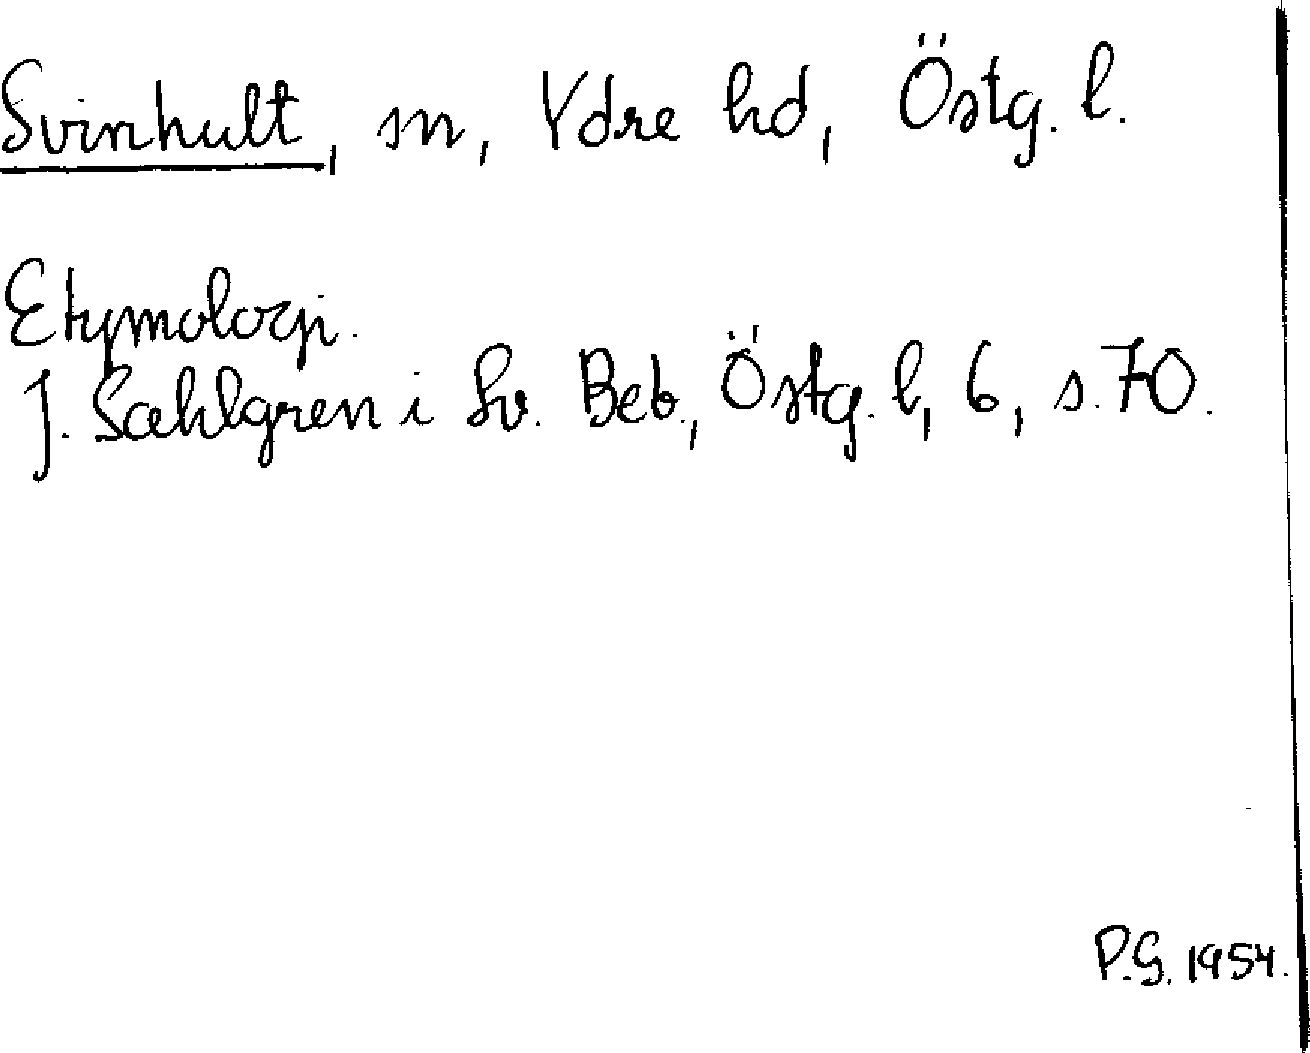 Svinhult, sn, Ydre hd, Östg. l.
Etymologi.
J. Sahlgren i Sv. Beb., Östg. l, 6, s. 70.
P.G. 1954.